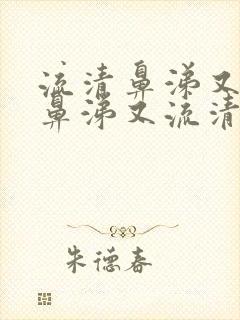 流清鼻涕又
鼻涕又流清
朱德春